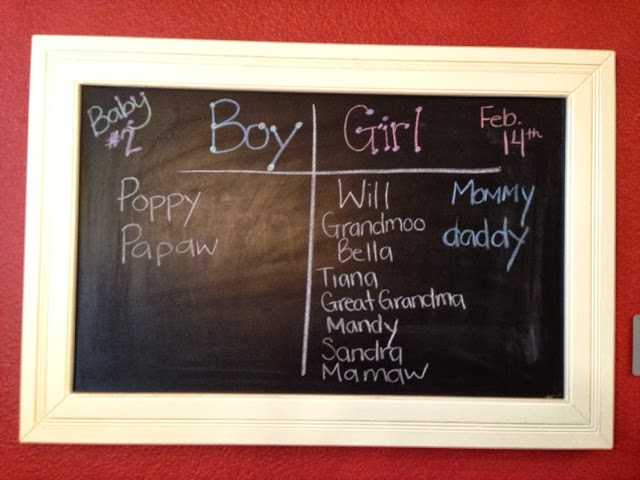 Baby
#2
Boy
Girl
Feb.
14th
Poppy
Papaw
Will
Grandmoo
Bella
Tiana
Great Grandma
Mandy
Sandra
Mamaw
Mommy
daddy